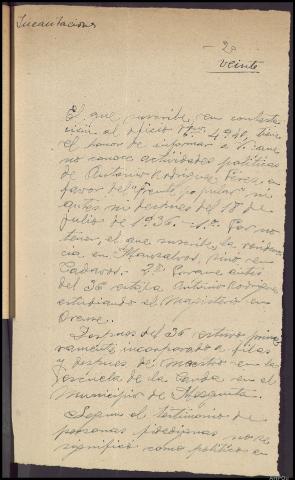 Incautaciones
- 20
veinte
El que suscribe, en contesta-
ción al oficio Nº 4940, tiene
el honor de informar a V. que
no conoce actividades políticas
de Antonio Rodríguez Pérez, en
favor del "frente popular" ni
antes ni después del 18 de
Julio de 1936. 1º Por no
tener, el que suscribe, la residen-
cia, en Mansalvos, sino en
Cadavos. 2º Porque antes
del 36 estaba Antonio Rodríguez
estudiando el Magisterio en
Orense.
Despues del 36 estuvo prime-
ramente incorporado a filas
y despues de Maestro en la
Escuela de la Canda en el
Municipio de Mezquita.
Segun el testimonio de
personas fidedignas no se
significó como político en